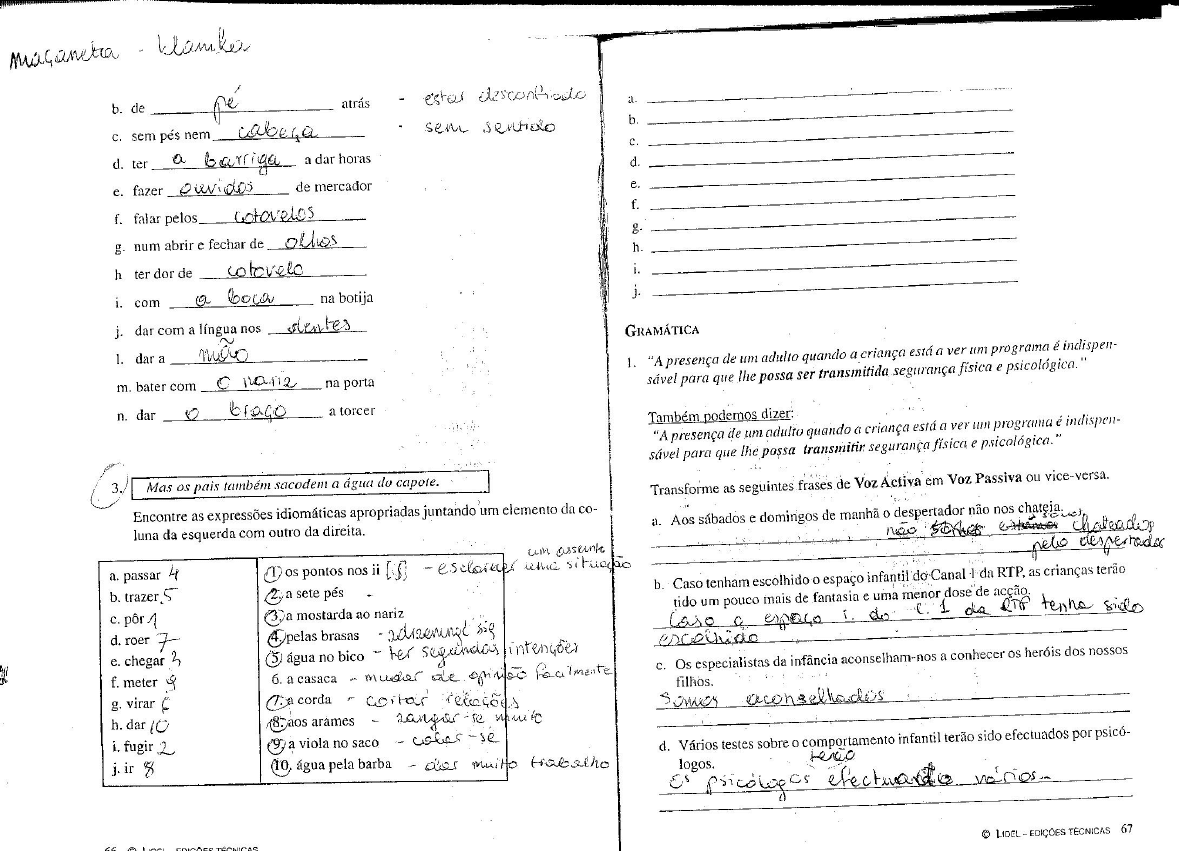 maçaneta - klamka
b. de pé atrás - estar desconfiado
c. sem pés nem cabeça - sem sentido
d. ter a barriga a dar horas
e. fazer ouvidos de mercador
f. falar pelos cotovelos
g. num abrir e fechar de olhos
h ter dor de cotovelo
i. com a boca na botija
j. dar com a língua nos dentes
l. dar a mão
m. bater com o nariz na porta
n. dar o braço a torcer
3. Mas os pais também sacodem a água do capote.
Encontre as expressões idiomáticas apropriadas juntando um elemento da co-
luna da esquerda com outro da direita.
um assunto
a. passar 4 1 os pontos nos ii [is] - esclarecer uma situação
b. trazer 5 2. a sete pés -
c. pôr 1 3. a mostarda ao nariz
d. roer 7 4. pelas brasas -
e. chegar 3 5. água no bico - ter segundas intenções
f. meter 9 6. a casaca - mudar de opinião facilmente
g. virar 6 7. a corda - cortar relações
h. dar 10 8. aos arames - zangar-se muito
i. fugir 2 9. a viola no saco - calar-se
j. ir 8 10. água pela barba - dar muito trabalho
66 © LIDEL – EDIÇÕES TÉCNICAS
a.
b.
c.
d.
e.
f.
g.
h.
i.
j.
GRAMÁTICA
1. "A presença de um adulto quando a criança está a ver um programa é indispen-
sável para que lhe possa ser transmitida segurança física e psicológica."
Também podemos dizer:
"A presença de um adulto quando a criança está a ver um programa é indispen-
sável para que lhe possa transmitir segurança física e psicológica."
Transforme as seguintes frases de Voz Activa em Voz Passiva ou vice-versa.
a. Aos sábados e domingos de manhã o despertador não nos chateia.
não somos chateados
pelo despertador
b. Caso tenham escolhido o espaço infantil do Canal 1 da RTP, as crianças terão
tido um pouco mais de fantasia e uma menor dose de acção.
Caso o espaço i. do C. 1 da RTP tenha sido
escolhido
c. Os especialistas da infância aconselham-nos a conhecer os heróis dos nossos
filhos.
Somos aconselhados
d. Vários testes sobre o comportamento infantil terão sido efectuados por psicó-
logos.
terão
Os psicólogos efectuado vários
© LIDEL – EDIÇÕES TÉCNICAS 67